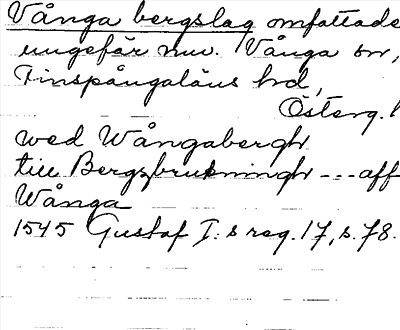 Vånga bergslag omfattade
ungefär nuv. Vånga sn,
Finspångaläns hd,
Österg.l
wed Wångabergh
till Bergzbrukningh --- aff
Wånga
1545 Gustaf I:s reg. 17, s. 78.